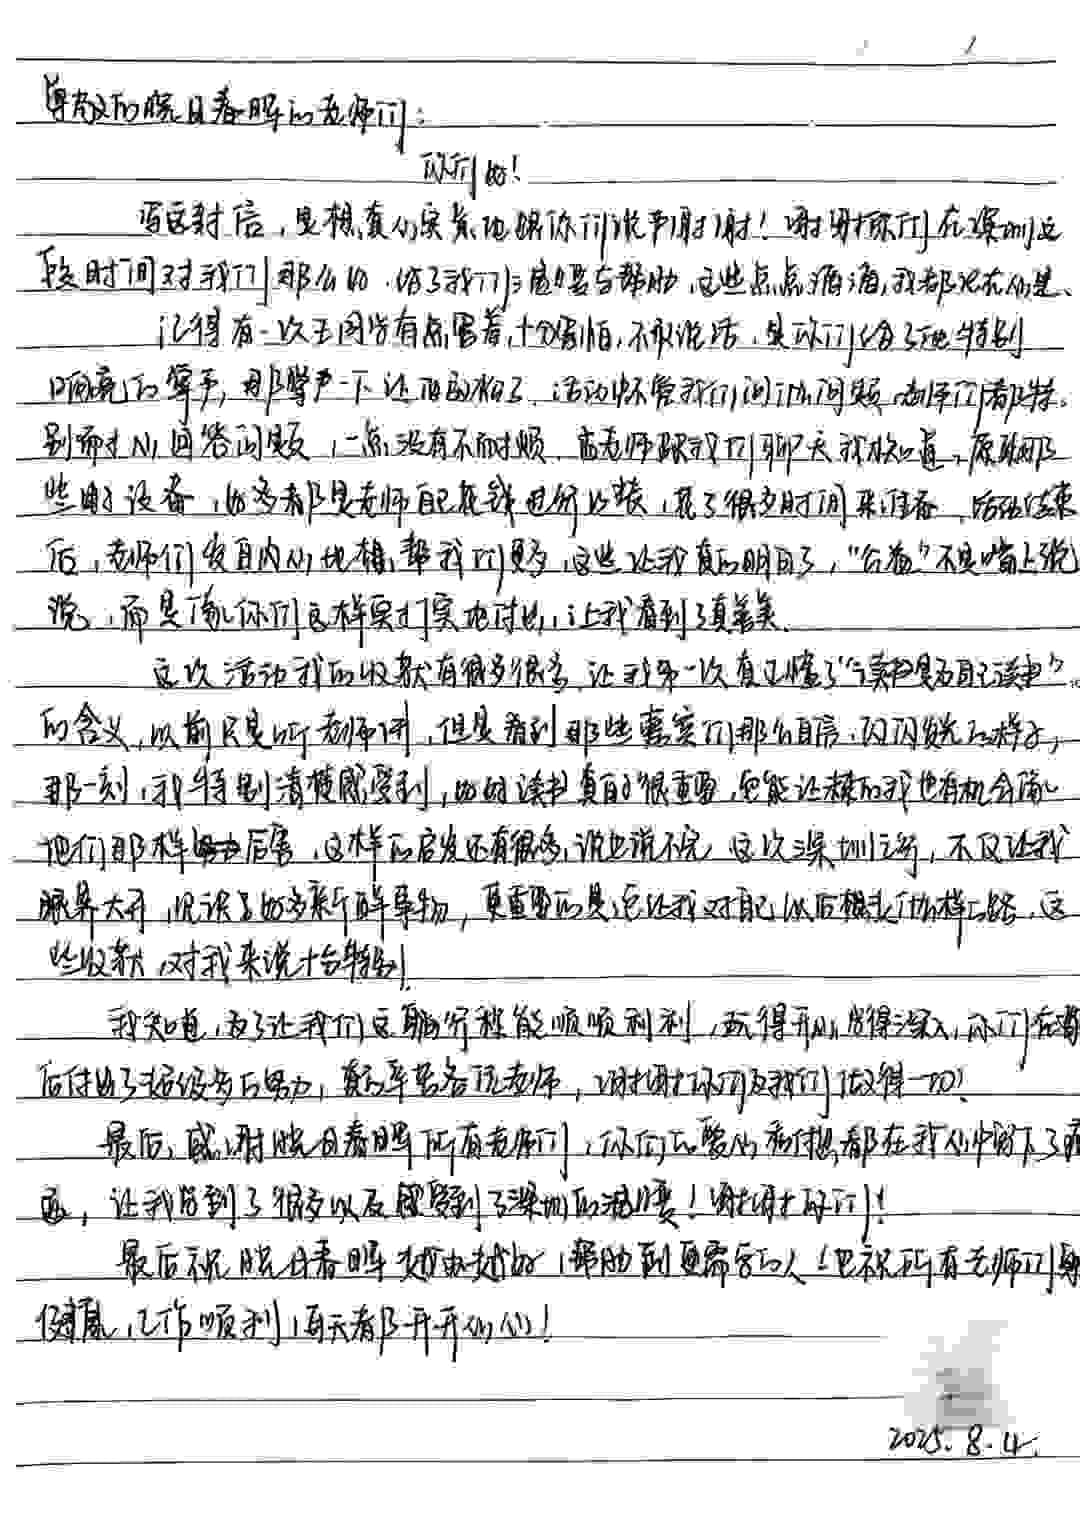 尊敬的晓日春晖的老师们：
你们好！
写这封信，是想真心实意地跟你们说声谢谢！谢谢你们在深圳这
段时间对我们那么好，给了我们温暖与帮助，这些点点滴滴，我都记在心里。
记得有一次王同学有点害羞，十分害怕，不敢说话，是你们给了她特别
响亮的掌声，那掌声一下让她放松了。活动中不管我们问什么问题，老师们都特
别耐心回答问题，一点没有不耐烦。老师跟我们聊天我才知道，原来那
些设备，好多都是老师自己花钱进行改装，花了很多时间来准备，活动结束
后，老师们发自内心地想帮我们更多，这些让我真的明白了，“公益”不是嘴上说
说，而是像你们这样实打实地付出，让我看到了真善美。
这次活动我的收获有很多很多，让我第一次真正懂了“读书是为自己读书”
的含义，以前只是听老师讲，但是看到那些嘉宾们那么自信，闪闪发光的样子，
那一刻，我特别清楚感受到，好好读书真的很重要，它能让未来的我也有机会像
他们那样厉害，这样的启发还有很多，说也说不完，这次深圳之行，不仅让我
眼界大开，见识了好多新鲜事物，更重要的是它让我对自己以后想走什么样的路，这
些收获，对我来说十分特别！
我知道，为了让我们这趟行程能顺顺利利，玩得开心，学得深入，你们在背
后付出了超级多的努力，真的辛苦各位老师，谢谢你们为我们做得一切！
最后，感谢晓日春晖所有老师们，你们的爱心和付出都在我心中留下了痕
迹，让我学到了很多以及感受到了深圳的温暖！谢谢你们！
最后祝晓日春晖越办越好，帮助到更需要的人！也祝所有老师们身
体健康，工作顺利，每天都开开心心！
2025.8.4.